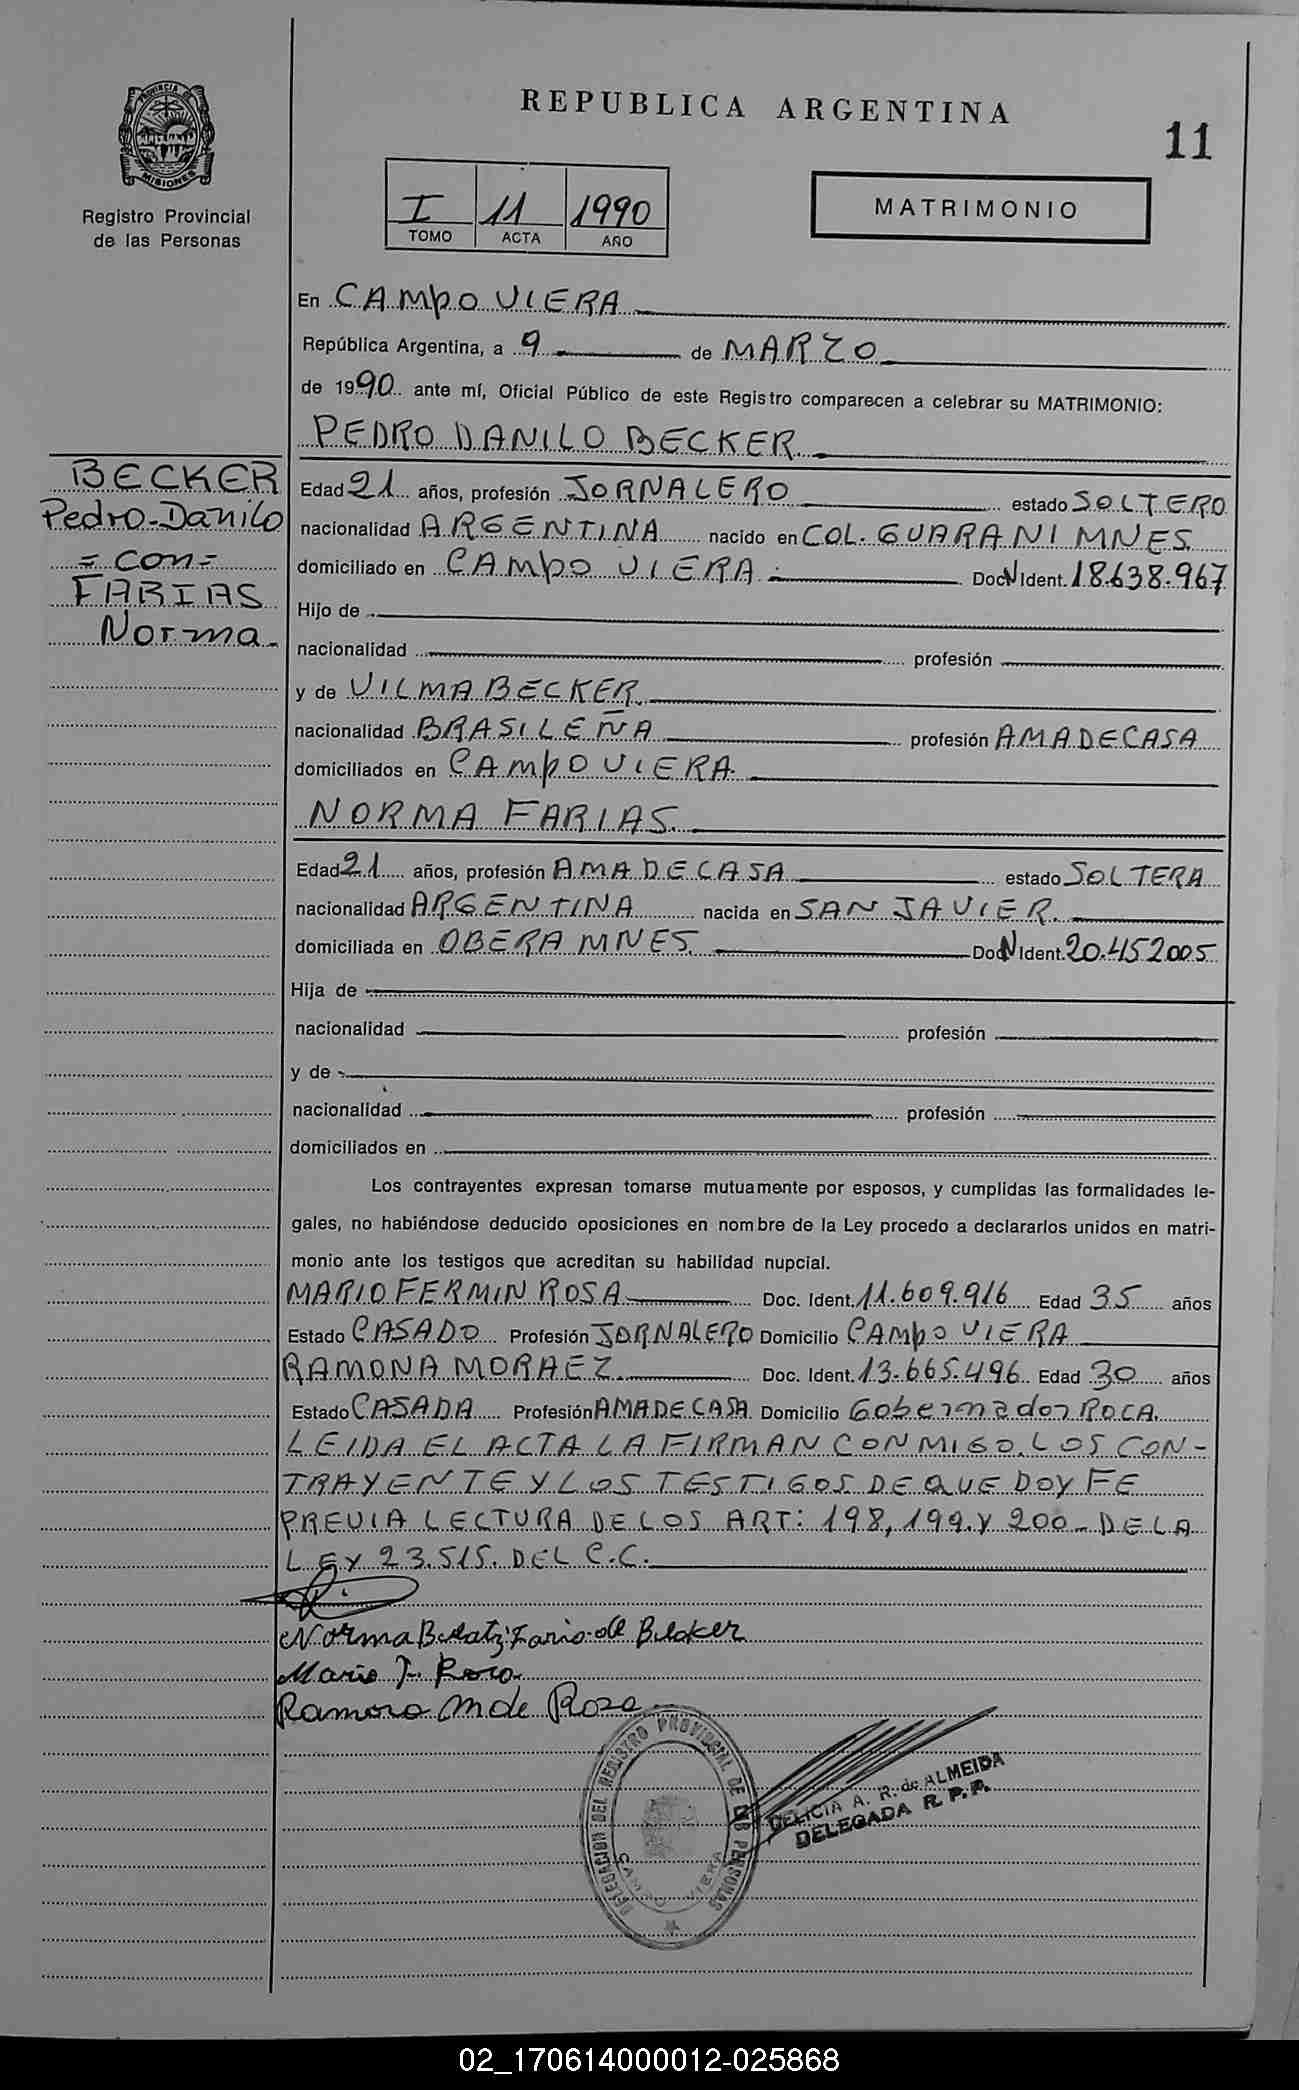 REPUBLICA ARGENTINA
11
PROVINCIA DE MISIONES
Registro Provincial
de las Personas
I 11 1990
TOMO ACTA AÑO
MATRIMONIO
En CAMPO VIERA
República Argentina, a 9 de MARZO
de 1990 ante mí, Oficial Público de este Registro comparecen a celebrar su MATRIMONIO:
PEDRO DANILO BECKER
BECKER
Pedro-Danilo
= con =
FARIAS
Norma-
Edad 21 años, profesión JORNALERO estado SOLTERO
nacionalidad ARGENTINA nacido en COL. GUARANI MNES.
domiciliado en CAMPO VIERA. Doc N Ident. 18.638.967
Hijo de
nacionalidad profesión
y de VILMA BECKER.
nacionalidad BRASILEÑA profesión AMA DE CASA
domiciliados en CAMPO VIERA.
NORMA FARIAS.
Edad 21 años, profesión AMA DE CASA estado SOLTERA
nacionalidad ARGENTINA nacida en SAN JAVIER.
domiciliada en OBERA MNES. Doc N Ident. 20.452005
Hija de
nacionalidad profesión
y de
nacionalidad profesión
domiciliados en
Los contrayentes expresan tomarse mutuamente por esposos, y cumplidas las formalidades le-
gales, no habiéndose deducido oposiciones en nombre de la Ley procedo a declararlos unidos en matri-
monio ante los testigos que acreditan su habilidad nupcial.
MARIO FERMIN ROSA Doc. Ident. 11.609.916 Edad 35 años
Estado CASADO Profesión JORNALERO Domicilio CAMPO VIERA
RAMONA MORAEZ. Doc. Ident. 13.665.496 Edad 30 años
Estado CASADA Profesión AMA DE CASA Domicilio Gobernador ROCA.
LEIDA EL ACTA LA FIRMAN CONMIGO. LOS CON-
TRAYENTE Y LOS TESTIGOS DE QUE DOY FE
PREVIA LECTURA DE LOS ART: 198, 199. Y 200- DE LA
LEY 23.515. DEL C.C.
Norma Beatriz Farias de Becker
Mario F. Rosa
Ramona M de Rosa
DELEGACION DEL REGISTRO PROVINCIAL DE LAS PERSONAS
CAMPO VIERA
DELICIA A. R. de ALMEIDA
DELEGADA R. P. P.
02_170614000012-025868